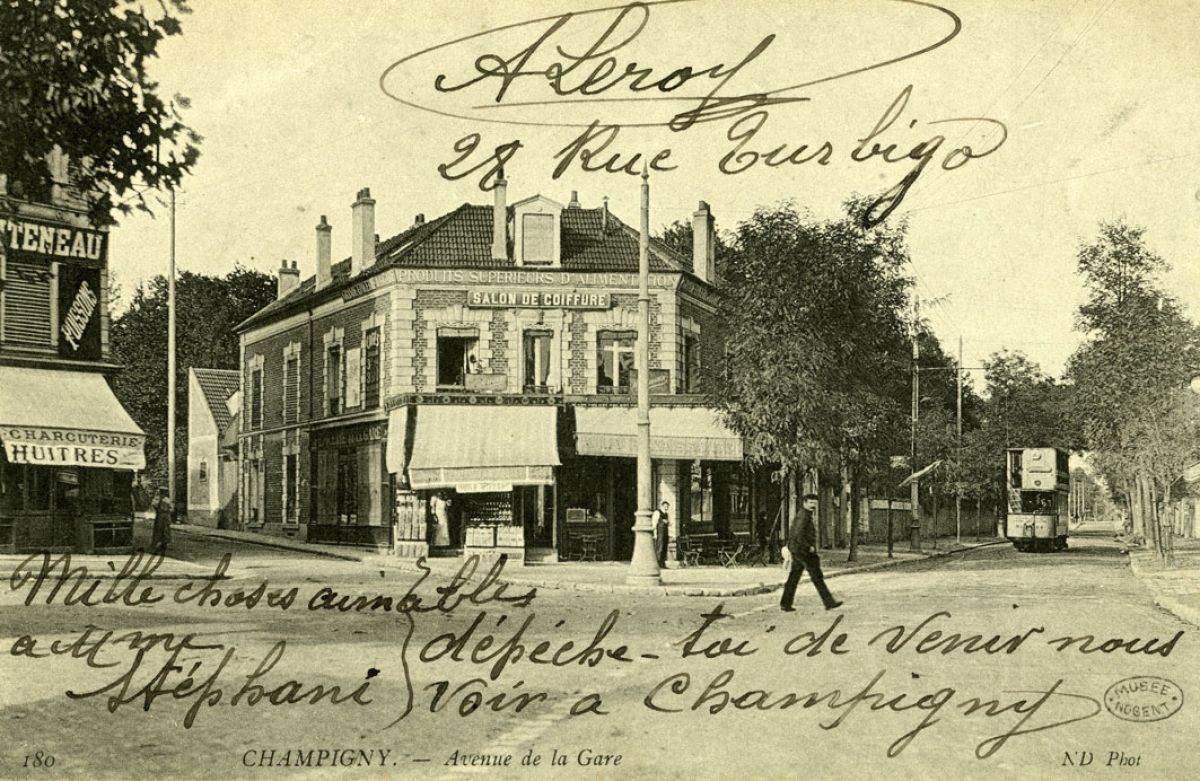 A Leroy
28 Rue Turbigo
TENEAU
POISSONS
PRODUITS SUPERIEURS D'ALIMENTATION
SALON DE COIFFURE
CHARCUTERIE
HUITRES
Mille choses aimables
a Mme
Stéphani
dépéche-toi de venir nous
voir a Champigny
MUSÉE
NOGENT
180 CHAMPIGNY. — Avenue de la Gare ND Phot